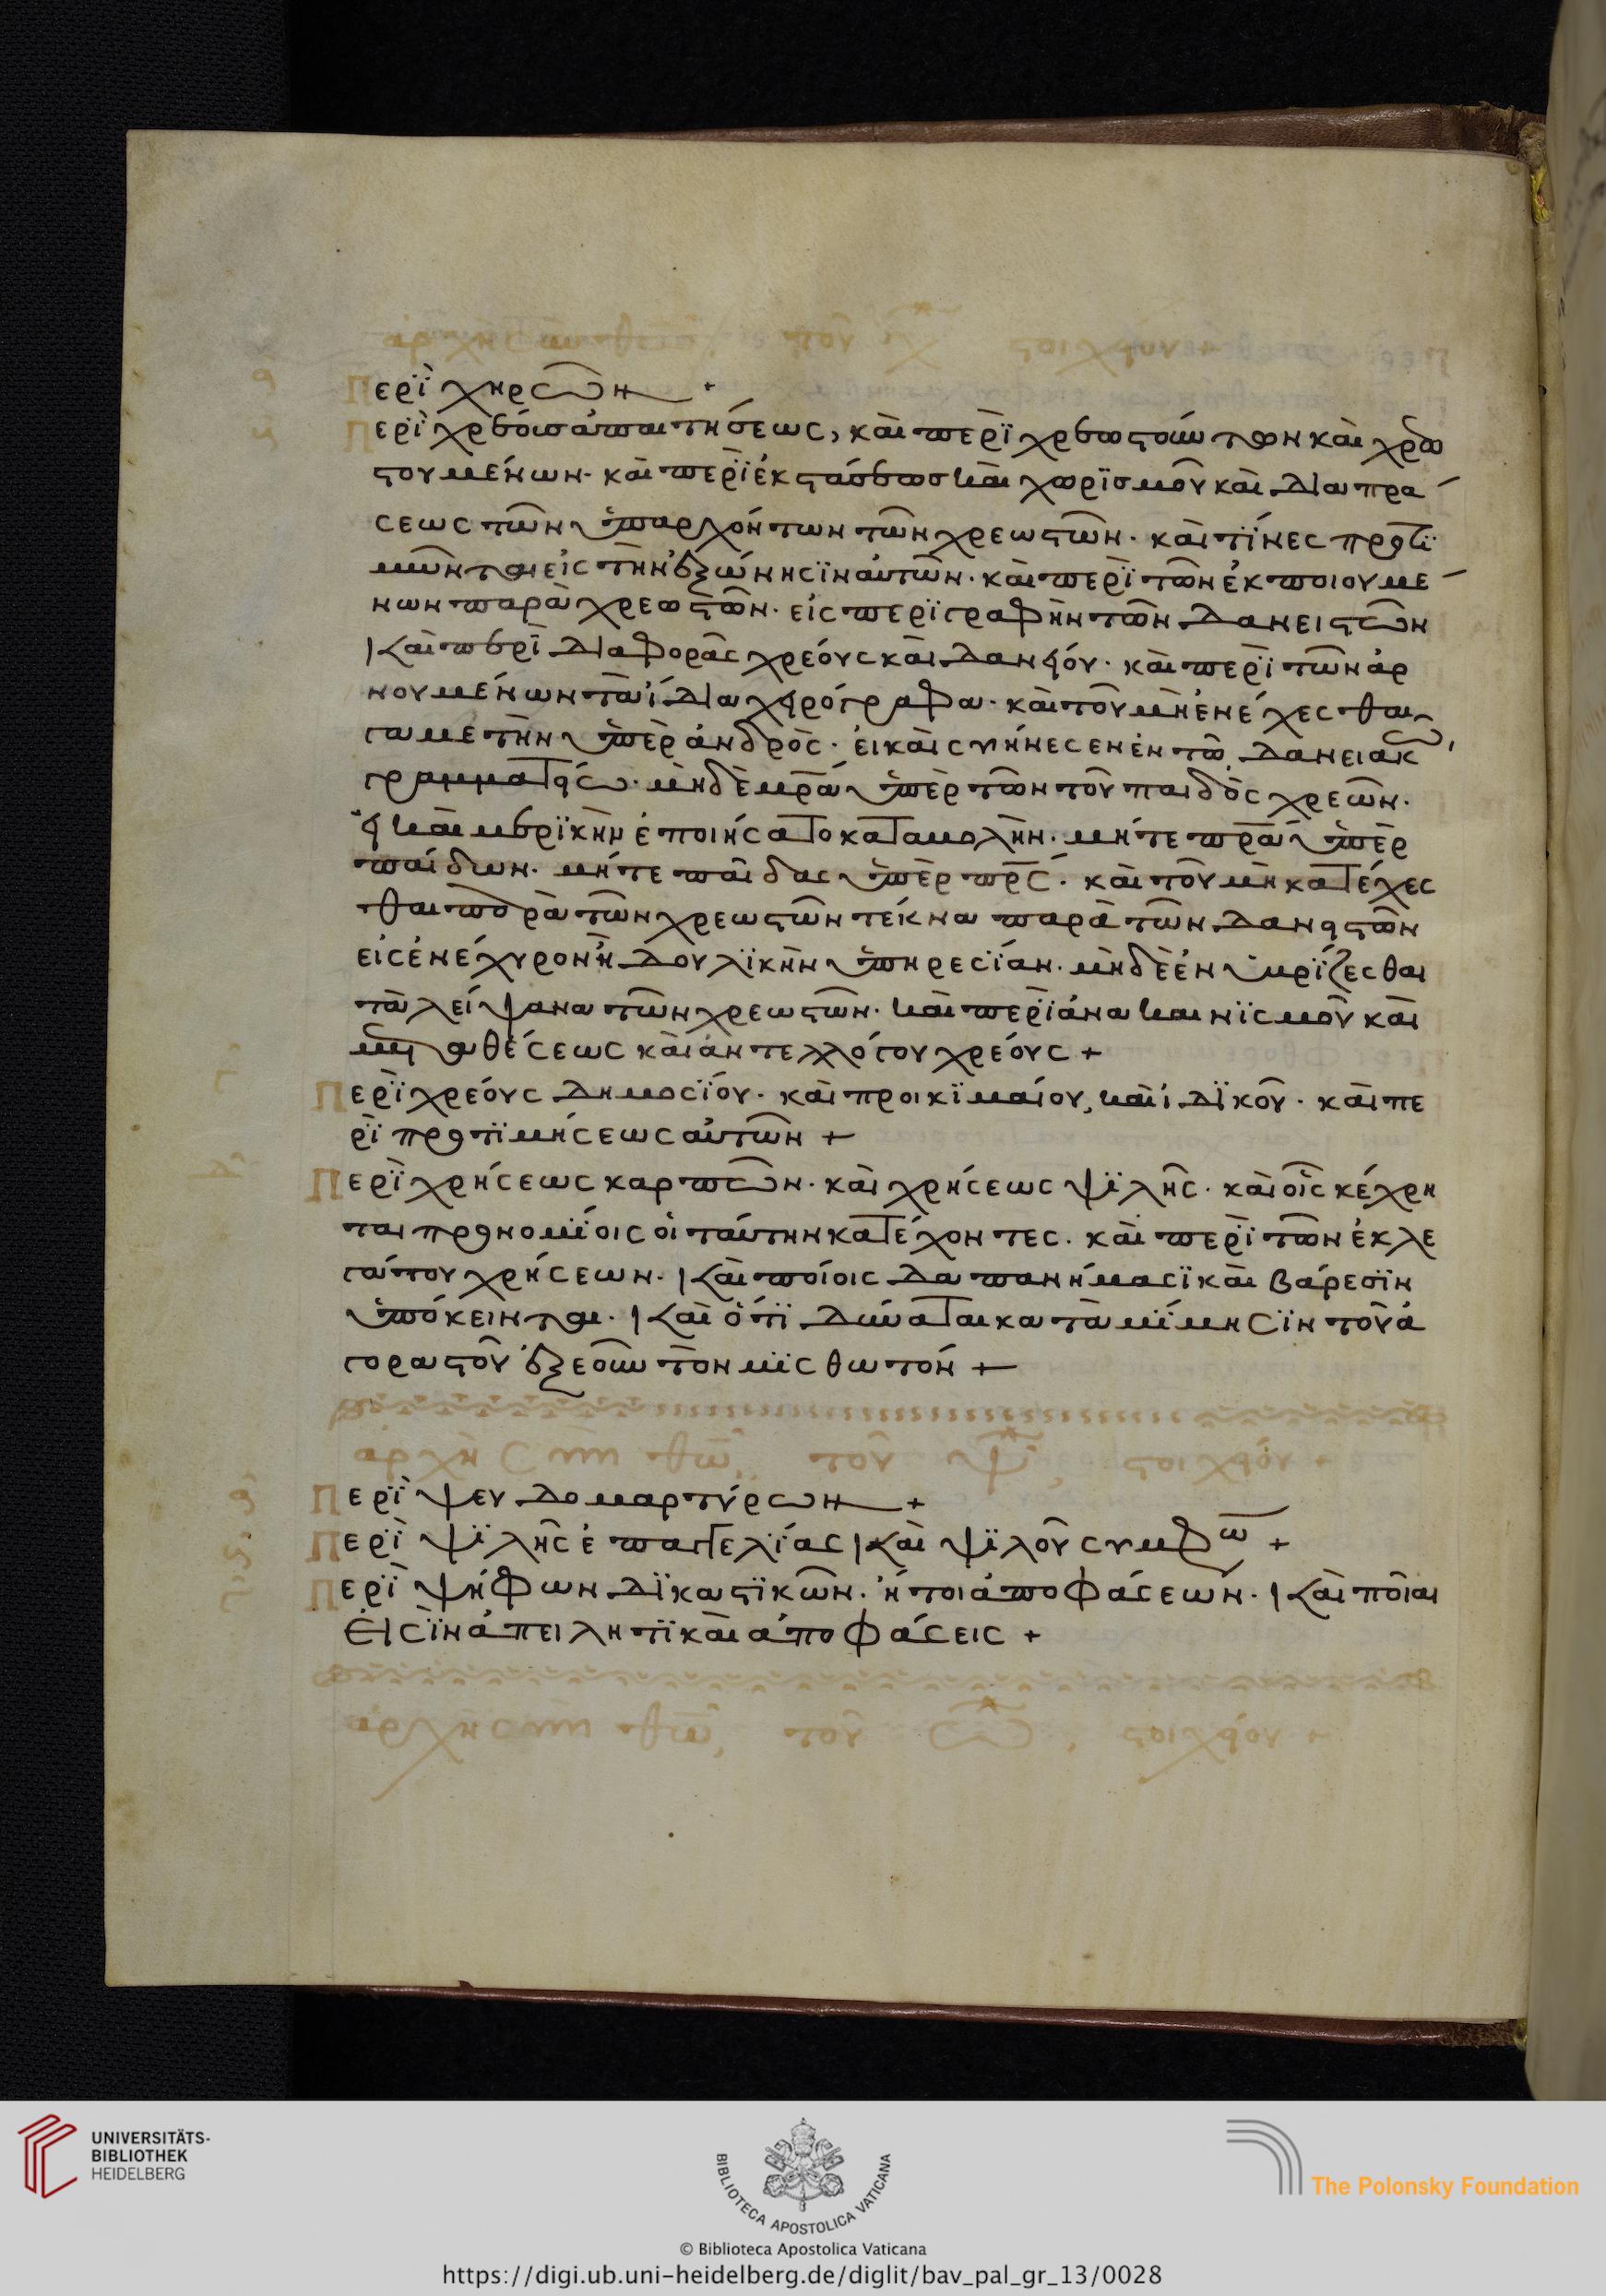 ἀρχὴ σὺν θεῶ, τοῦ χ στοιχείου +
Περὶ χηρῶν +
Περὶ χρέους ἀπαιτήσεως, καὶ περὶ χρεωστούντων καὶ χρεω
στουμένων· καὶ περὶ ἐκστάσεως καὶ χωρισμοῦ καὶ διαπρά
σεως τῶν ὑπαρχόντων τῶν χρεωστῶν· καὶ τίνες προτι
μῶνται εἰς τὴν ἐξώνησιν αὐτῶν· καὶ περὶ τῶν ἐκποιουμέ
νων παρὰ χρεωστῶν· εἰς περιγραφὴν τῶν δανειστῶν
καὶ περὶ διαφορᾶς χρέους καὶ δανείου· καὶ περὶ τῶν ἀρ
νουμένων τὰ ἴδια χειρόγραφα· καὶ τοῦ μὴ ἐνέχεσθαι
γαμετὴν ὑπὲρ ἀνδρὸς· εἰ καὶ συνήνεσεν ἐν τῶ δανειακῶ
γραμματείω· μηδὲ μρα ὑπὲρ τῶν τοῦ παιδὸς χρεῶν·
εἰ καὶ μερικὴν ἐποιήσατο καταβολὴν· μήτε πρα ὑπὲρ
παίδων· μήτε παῖδας ὑπὲρ πρς· καὶ τοῦ μὴ κατέχεσ
θαι τὰ τῶν χρεωστῶν τέκνα παρὰ τῶν δανειστῶν
εἰς ἐνέχυρον ἢ δουλικὴν ὑπηρεσίαν· μηδὲ ἐνυβρίζεσθαι
τὰ λείψανα τῶν χρεωστῶν· καὶ περὶ ἀνακαινισμοῦ καὶ
μεταθέσεως καὶ ἀντελλόγου χρέους +
Περὶ χρέους δημοσίου· καὶ προικιμαίου, καὶ ἰδικοῦ· καὶ πε
ρὶ προτιμήσεως αὐτῶν +
Περὶ χρήσεως καρπῶν· καὶ χρήσεως ψιλῆς· καὶ οἷς κέχρη
ται προνομίοις οἱ ταύτην κατέχοντες· καὶ περὶ τῶν ἐκ λε
γάτου χρήσεων· καὶ ποίοις δαπανήμασι καὶ βάρεσιν
ὑπόκεινται· καὶ ὅτι δύναται κατὰ μίμησιν τοῦ ἀ
γοραστοῦ ἐξεοῦν τὸν μισθωτόν +
ἀρχὴ σὺν θεῶ, τοῦ ψ, στοιχείου +
Περὶ ψευδομαρτύρων +
Περὶ ψιλῆς ἐπαγγελίας καὶ ψιλοῦ συμφώ +
Περὶ ψήφων δικαστικῶν· ἤτοι ἀποφάσεων· καὶ ποῖαι
εἰσὶν ἀπειλητικαὶ ἀποφάσεις +
ἀρχὴ σὺν θεῶ, τοῦ ω, στοιχείου +
UNIVERSITÄTS-
BIBLIOTHEK
HEIDELBERG
BIBLIOTECA APOSTOLICA VATICANA
The Polonsky Foundation
© Biblioteca Apostolica Vaticana
https://digi.ub.uni-heidelberg.de/diglit/bav_pal_gr_13/0028